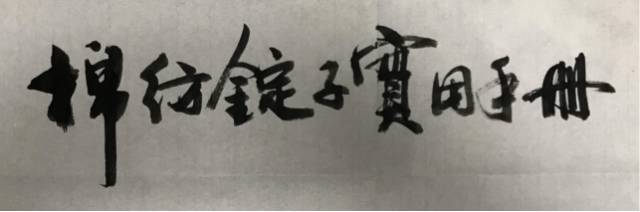 棉纺錠子實用手册